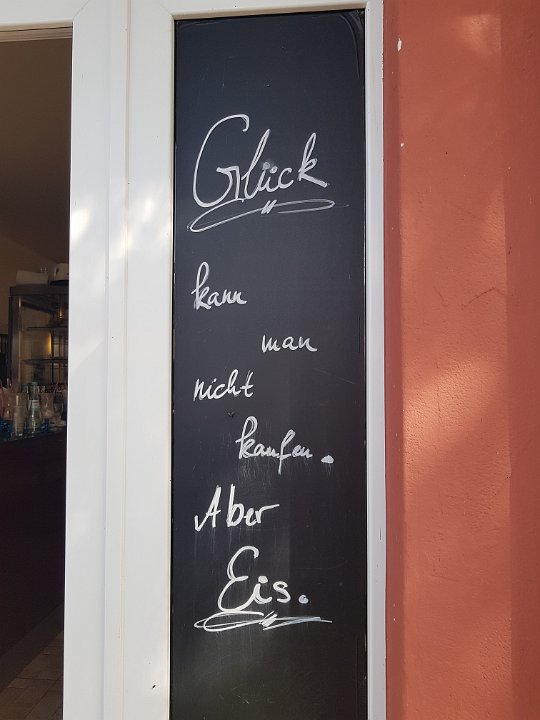 Glück
kann
man
nicht
kaufen.
Aber
Eis.